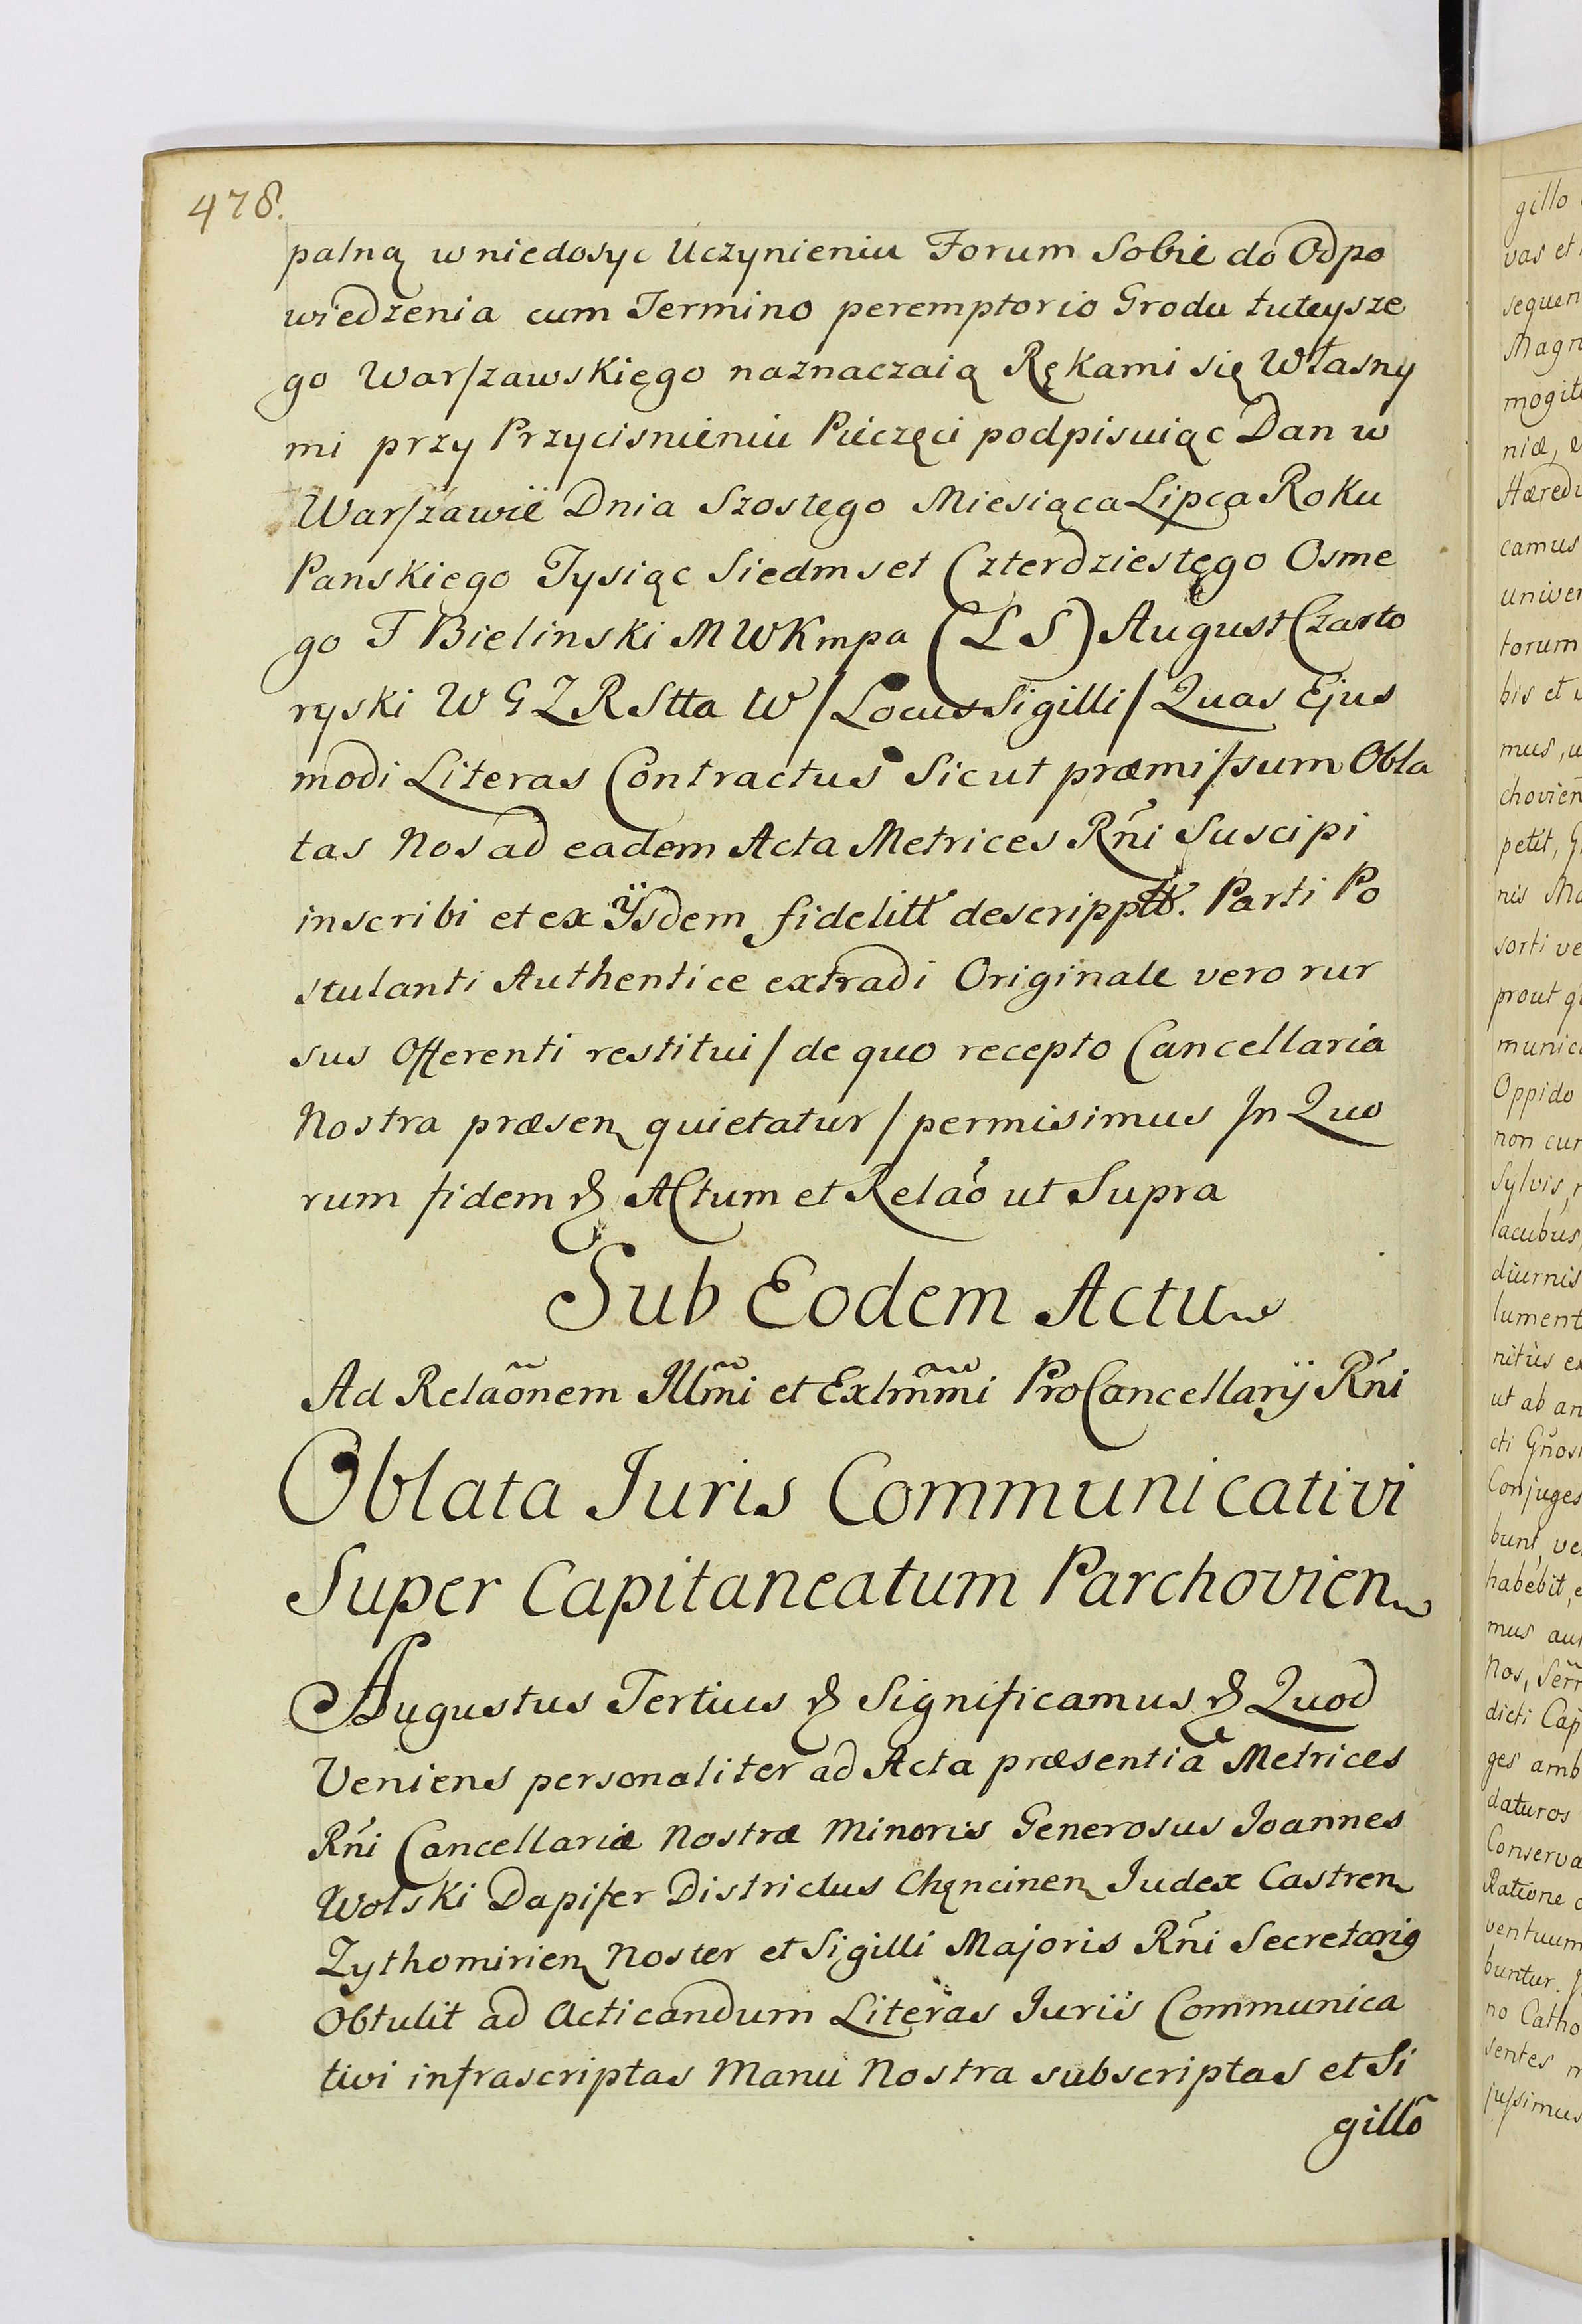 478.
palną w niedosyc Uczynieniu Forum Sobie do Odpo
wiedzenia cum Termino peremptorio Grodu tuteysze
go Warszawskiego naznaczaią Rękami się Własny
mi przy Przycisnieniu Pieczęci podpisuiąc Dan w
Warszawie Dnia Szostego Miesiąca Lipca Roku
Panskiego Tysiąc Siedmset Czterdziestego Osme
go F Bielinski M W K mpa (L S) August Czarto
ryski W G Z R Stta W / Locus Sigilli / Quas Ejus
modi Literas Contractus Sicut præmissum Obla
tas Nos ad eadem Acta Metrices Rñi Suscipi
inscribi et ex ÿsdem fidelitt descripptt. Parti Po
stulanti Authentice extradi Originale vero rur
sus Offerenti restitui / de quo recepto Cancellaria
Nostra præsen quietatur / permisimus In Quo
rum fidem & Actum et Relaõ ut Supra
Sub Eodem Actu
Ad Relaõnem Illm̃i et Exlm̃mi ProCancellarÿ Rñi
Oblata Juris Communicativi
Super Capitaneatum Parchovien
Augustus Tertius & Significamus & Quod
Veniens personaliter ad Acta præsentia Metrices
Rñi Cancellariæ Nostræ Minoris Generosus Joannes
Wolski Dapifer Districtus Chęncinen Judex Castren
Zythomirien Noster et Sigilli Majoris Rñi Secretariq
Obtulit ad Acticandum Literas Juris Communica
tivi infrascriptas Manu Nostra subscriptas et Si
gillo
gillo
vas et
sequen
Magn
mogit
niæ, e
Hæred
camus
univer
torum
bis et
mus, u
chovien
petit, G
nis Ma
sorti ve
prout q
munic
Oppido
non cur
Sylvis, r
lacubus,
diurnis
lument
nitus ex
ut ab an
cti Gños
Conjuges
bunt, ve
habebit, e
mus au
Nos, Serr
dicti Cap
ges amb
daturos
Conserva
Ratione
ventuum
buntur.
no Catho
sentes m
jussimus